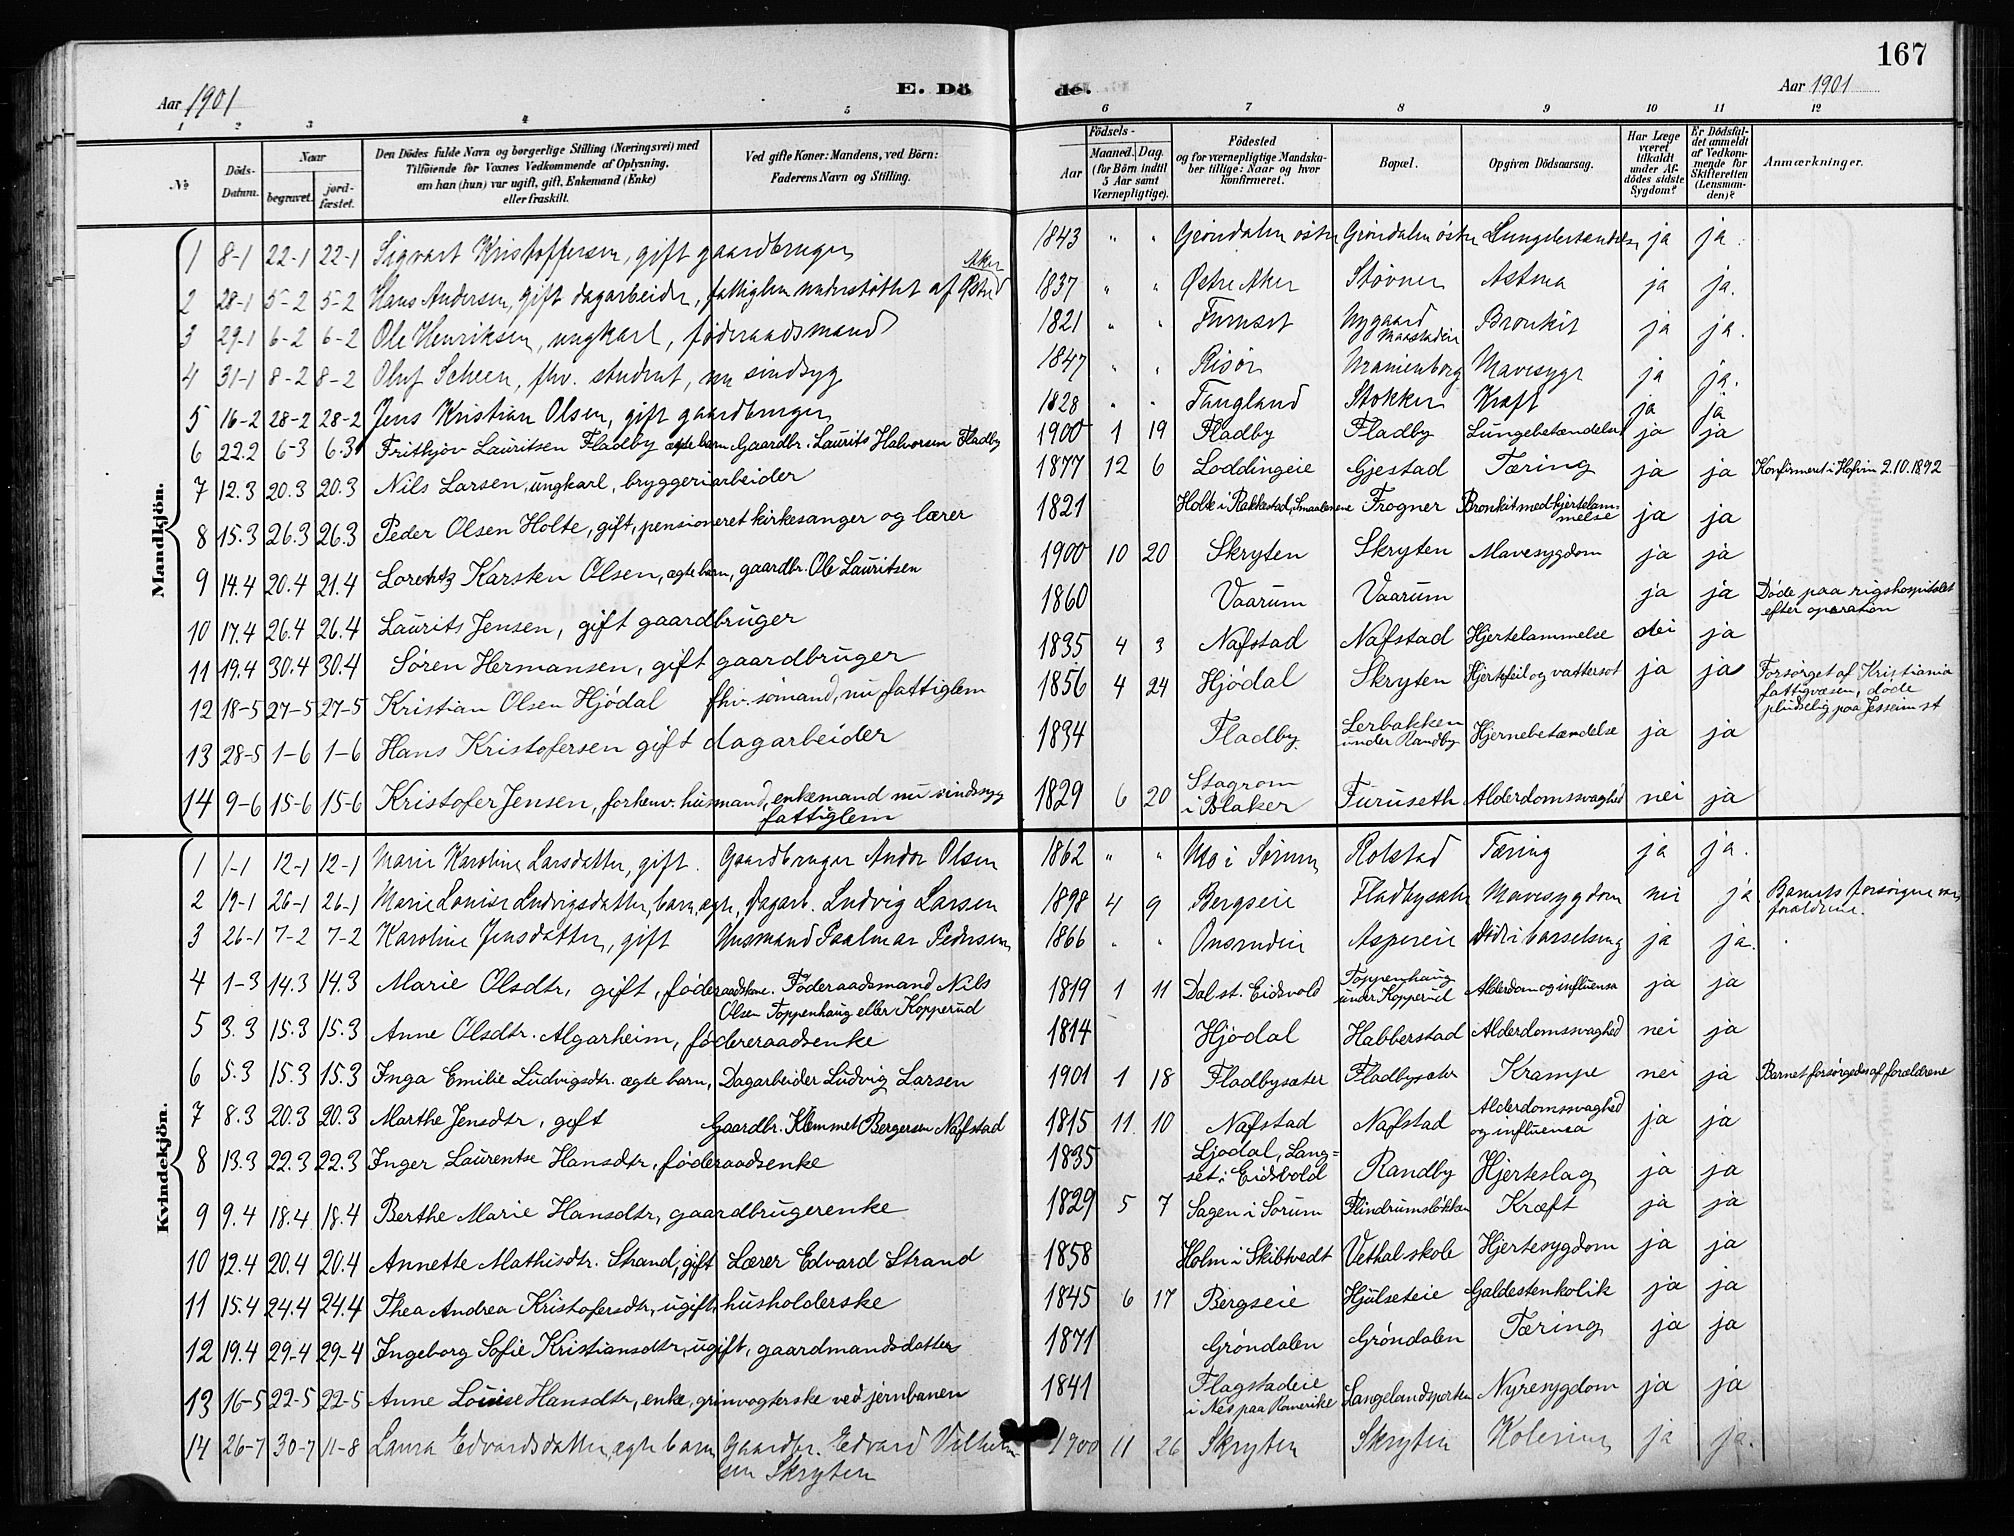 167
Aar 1901
E. Dö
de.
Aar 1901
1 2 3 4 5 6 7 8 9 10 11 12
№
Döds-Datum.
Naar
begravet.
jord-fæstet.
Den Dödes fulde Navn og borgerlige Stilling (Næringsvei) med
Tilföiende for Voxnes Vedkommende af Oplysning.
om han (hun) var ugift, gift, Enkemand (Enke)
eller fraskilt.
Ved gifte Koner: Mandens, ved Börn:
Faderens Navn og Stilling.
Födsels-
Aar
Maaned. Dag.
(for Börn indtil
5 Aar samt
Værnepligtige).
Födested
og for værnepligtige Mandska-
ber tillige: Naar og hvor
konfirmeret.
Bopæl.
Opgiven Dödsaarsag.
Har Læge
været
tilkaldt
under Af-
dödes sidste
Sygdom?
Er Dödsfal-
det anmeldt
af Vedkom-
mende for
Skifteretten
(Lensman-
den)?
Anmærkninger.
Mandkjön.
1 8-1 22-1 22-1 Sigvart Kristoffersen, gift gaardbruger 1843 " " Grøndalen østre Grøndalen østre Lungebetændelse ja ja.
2 28-1 5-2 5-2 Hans Andersen, gift dagarbeider, fattiglem understøttet af Østre Aker 1837 " " Østre Aker Støvner Astma ja ja.
3 29-1 6-2 6-2 Ole Henriksen, ungkarl, føderaadsmand 1821 " " Furuset Nygaard Bronkit ja ja.
4 31-1 8-2 8-2 Oluf Scheen, fhv. student, nu sindsyg 1847 " " Risør Uranienborg Mavesyge ja ja.
5 16-2 28-2 28-2 Jens Kristian Olsen, gift gaardbruger 1828 " " Fangland Stokker Kræft ja ja
6 22.2 6-3 6.3 Fritkjov Lauritsen Fladby ægte barn Gaardbr. Laurits Halvorsen Fladby 1900 1 19 Fladby Fladby Lungebetændelse ja ja
7 12.3 20.3 20.3 Nils Larsen, ungkarl, bryggeriarbeider 1877 12 6 Loddingeie Gjestad Tæring ja ja Konfirmeret i Hofvin 2.10.1892
8 15.3 26.3 26.3 Peder Olsen Holte, gift, pensioneret kirkesanger og lærer 1821 Holte i Rakkestad, Smaalenene Frogner Bronkit med hjertelam-
melse ja ja
9 14.4 20.4 21.4 Lorentz Karsten Olsen, ægte barn, gaardbr. Ole Lauritsen 1900 10 20 Skryten Skryten Mavesygdom ja ja
10 17.4 26.4 26.4 Laurits Jensen, gift gaardbruger 1860 Vaarum Vaarum ja ja Døde paa rigshospitalet
efter operation
11 19.4 30.4 30.4 Søren Hermansen, gift gaardbruger 1835 4 3 Nafstad Nafstad Hjertelammelse nei ja
12 18-5 27-5 27-5 Kristian Olsen Hjødal fhv. sømand, nu fattiglem 1856 4 24 Hjødal Skryten Hjertefeil og vattersot ja ja Forsørget af Kristiania
fattigvæsen, døde
pludselig paa Jessheim st
13 28-5 1-6 1-6 Hans Kristofersen gift dagarbeider 1834 Fladby Lerbakken
under Randby Hjernebetændelse ja ja
14 9-6 15-6 15-6 Kristofer Jensen, forhenv. husmand, enkemand nu sindssyg
fattiglem 1829 6 20 Stagrom
i Blaker Furuseth Alderdomssvaghed nei ja
Kvindekjön.
1 1-1 12-1 12-1 Marie Karoline Larsdatter, gift. Gaardbruger Andor Olsen 1862 " " Mo i Sørum Rolstad Tæring ja ja.
2 19-1 26-1 26-1 Marie Louise Ludvigsdatter, barn, ægte, Dagarb. Ludvig Larsen 1898 4 9 Bergseie Fladbysæter Mavesygdom nei ja Barnets forsørgere var
forældrene.
3 26-1 7-2 7-2 Karoline Jensdatter, gift Husmand Paalmar Pedersen 1866 " " Onsrudeie Aspereie Døde i barselseng ja ja.
4 1-3 14.3 14.3 Marie Olsdtr. gift, føderaadskone. Føderaadsmand Nils
Olsen Toppenhaug eller Kopperud 1819 1 11 Dal st. Eidsvold Toppenhaug
under Kopperud Alderdom og influensa ja ja
5 3.3 15.3 15.3 Anne Olsdtr. Algarheim, fødereraadsenke 1814 Hjødal Habberstad Alderdomssvaghed nei ja
6 5.3 15.3 15.3 Inga Emilie Ludvigsdtr. ægte barn, Dagarbeider Ludvig Larsen 1901 1 18 Fladbysæter Fladbysæter Krampe nei ja Barnet forsørgedes af forældrene
7 8.3 20.3 20.3 Marthe Jensdtr, gift Gaardbr. Klemmet Bergersen Nafstad 1815 11 10 Nafstad Nafstad Alderdomssvaghed
og influensa ja ja
8 13.3 22.3 22.3 Inger Laurentse Hansdtr, føderaadsenke 1835 Ljødal, Lang-
set i Eidsvold Randby Hjerteslag ja ja
9 9.4 18.4 18.4 Berthe Marie Hansdtr, gaardbrugerenke 1829 5 7 Sagen i Sørum Flindrumsløkken Kræft ja ja
10 12.4 20.4 20.4 Annette Mathisdtr. Strand, gift Lærer Edvard Strand 1858 Holm i Skibtvedt Vethal skole Hjertesygdom ja ja
11 15.4 24.4 24.4 Thea Andrea Kristofersdtr, ugift, husholderske 1845 6 17 Bergseie Hjulseteie Galdestenkolik ja ja
12 19.4 29-4 29-4 Ingeborg Sofie Kristiansdtr, ugift, gaardmandsdatter 1871 Grøndalen Grøndalen Tæring ja ja
13 16-5 22-5 22-5 Anne Louise Hansdtr, enke, grinvogterske ved jernbanen 1841 Flagstadeie
i Nes paa Romerike Langelandsporten Nyresygdom ja ja
14 26-7 30-7 11-8 Laura Edvardsdatter, ægte barn Gaardbr. Edvard Vilhelm-
sen Skryten 1900 11 26 Skryten Skryten Kolerine ja ja.